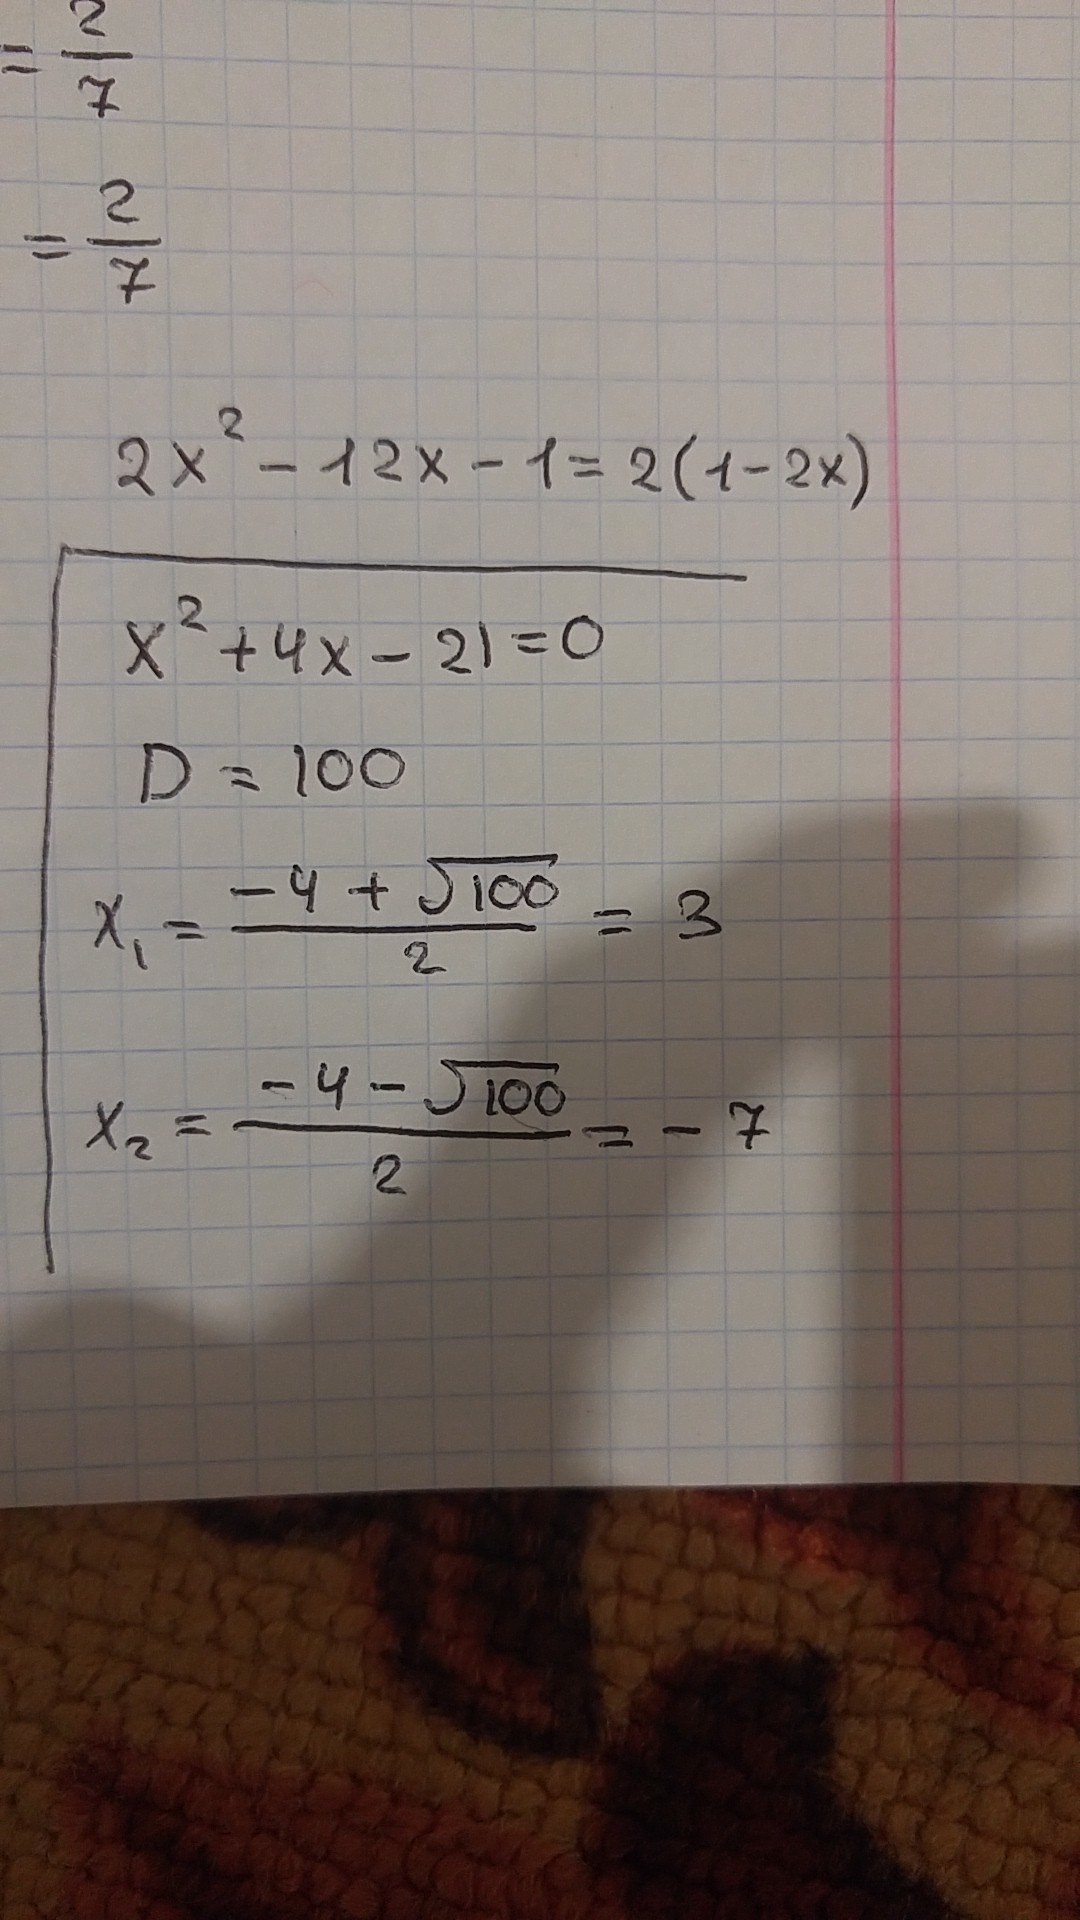 = 2/7
= 2/7
2x² - 12x - 1 = 2(1 - 2x)
x² + 4x - 21 = 0
D = 100
x₁ = (-4 + √100)/2 = 3
x₂ = (-4 - √100)/2 = -7